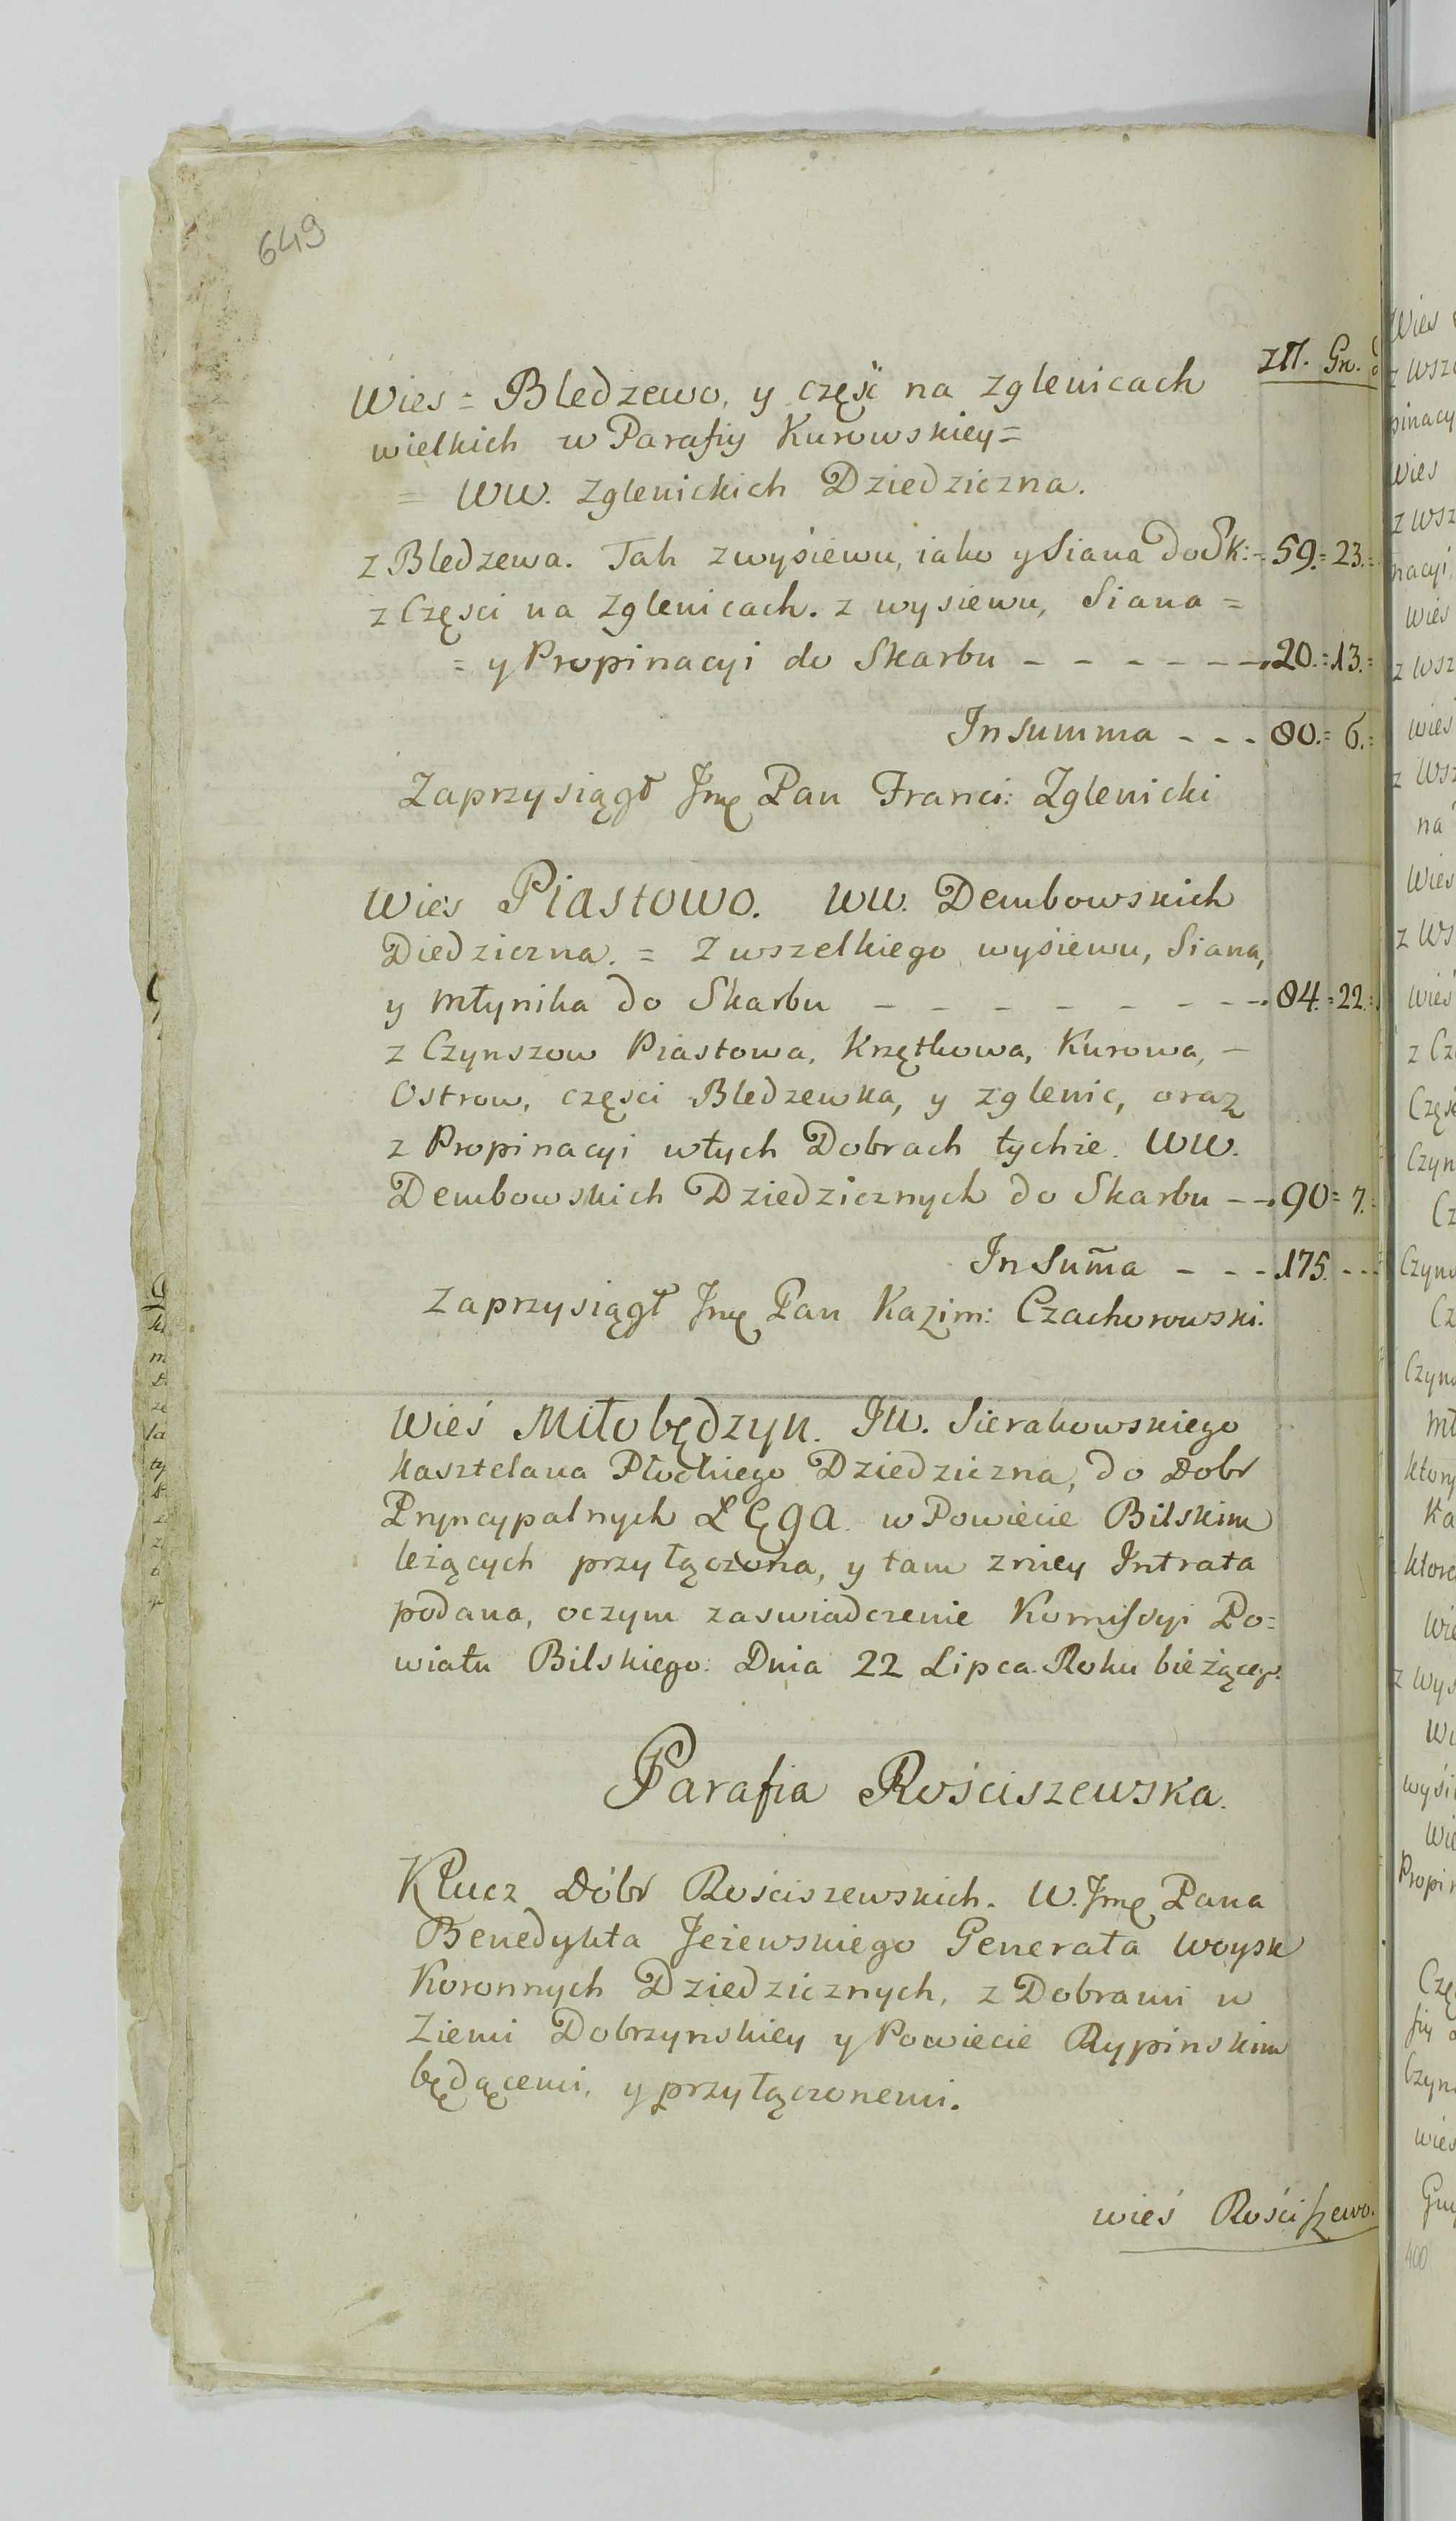 649
Złł. Gr.
Wieś = Bledzewo, y część na Zglenicach
wielkich w Parafiy Kurowskiey =
= WW. Zglenickich Dziedziczna.
z Bledzewa. Tak z wysiewu, iako y Siana do Sk: - 59. = 23. =
z Części na Zglenicach. z wysiewu, Siana =
= y Propinacyi do Skarbu - - - - - - 20. = 13. =
In Summa - - - 80. = 6. =
Zaprzysiągł Jmę Pan Franci: Zglenicki
Wieś Piastowo. WW. Dembowskich
Diedziczna. = Z wszelkiego wysiewu, Siana,
y młynika do Skarbu - - - - - - - 84. = 22. =
z Czynszow Piastowa, Krzętkowa, Kurowa, -
Ostrow, części Bledzewka, y Zglenic, oraz
z Propinacyi w tych Dobrach tychże. WW.
Dembowskich Dziedzicznych do Skarbu - - 90 = 7. =
In Sum̃a - - - 175. - -
Zaprzysiągł Jmę Pan Kazim: Czachorowski.
Wieś Miłobędzyn. JW. Sierakowskiego
Kasztelana Płockiego Dziedziczna, do Dobr
Pryncypalnych Łęga w Powiecie Bilskim
leżących przyłączona, y tam z niey Intrata
podana, oczym zaswiadczenie Komissyi Po=
wiatu Bilskiego. Dnia 22 Lipca Roku bieżącego.
Parafia Rościszewska.
Klucz Dóbr Rościszewskich. W. Jmę Pana
Benedykta Jeżewskiego Generała Woysk
Koronnych Dziedzicznych, z Dobrami w
Ziemi Dobrzynskiey y Powiecie Rypinskim
będącemi, y przyłączonemi.
wieś Rościszewo.